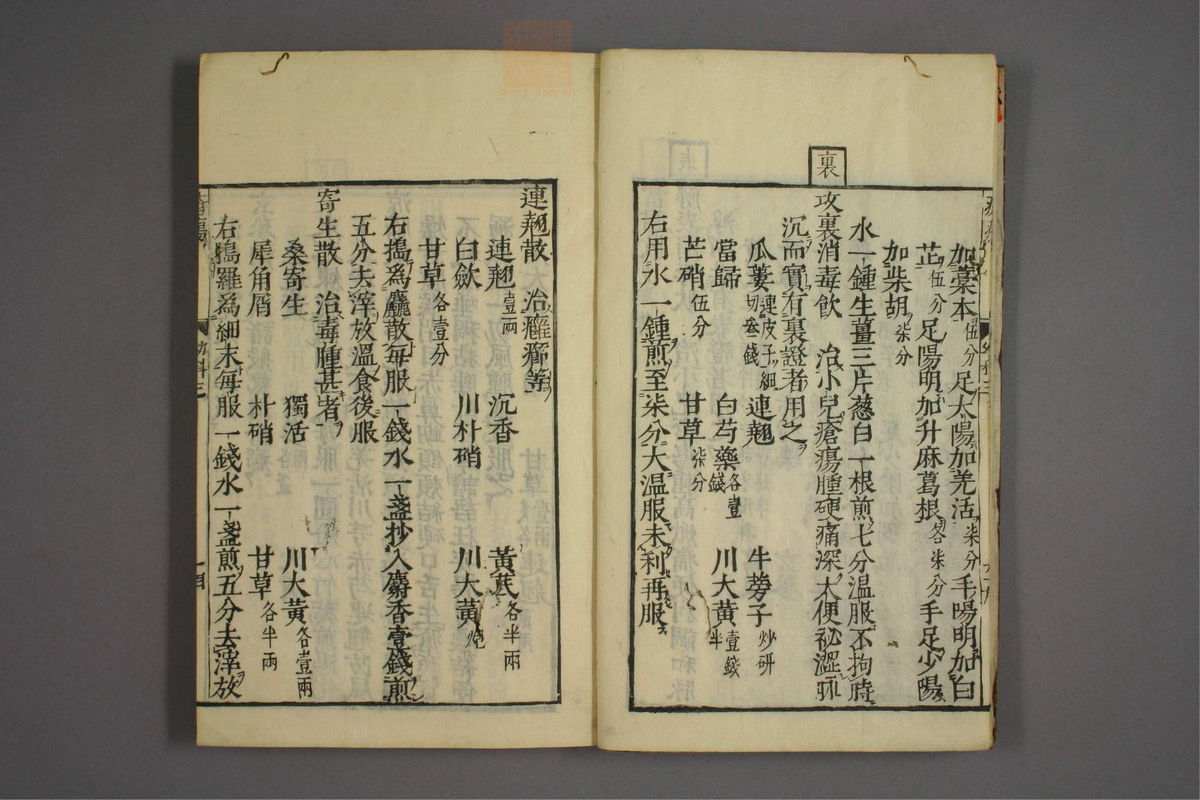 加藁本伍分足太陽加羌活柒分手陽明加白
芷伍分足陽明加升麻葛根各柒分手足少陽
加柴胡柒分
水一鍾生薑三片葱白一根煎七分溫服不拘時
裏
攻裏消毒飲 治小兒瘡瘍腫硬痛深大便祕澀脈
沉而實有裏證者用之
瓜蔞連皮子細切叁錢 連翹 牛蒡子炒研
當歸 白芍藥各壹錢 川大黃壹錢半
芒硝伍分 甘草柒分
右用水一鍾煎至柒分大溫服未利再服
連翹散 治癰癤等
連翹壹兩 沉香 黃芪各半兩
白歛 川朴硝 川大黃炮
甘草各壹分
右搗爲麤散每服一錢水一盞抄入麝香壹錢煎
五分去滓放溫食後服
寄生散 治毒腫甚者
桑寄生 獨活 川大黃各壹兩
犀角屑 朴硝 甘草各半兩
右搗羅爲細末每服一錢水一盞煎五分去滓放